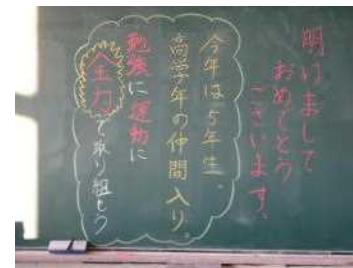 明けまして
おめでとう
ございます。
今年は5年生。
高学年の仲間入り。
勉強に運動に
全力で取り組もう